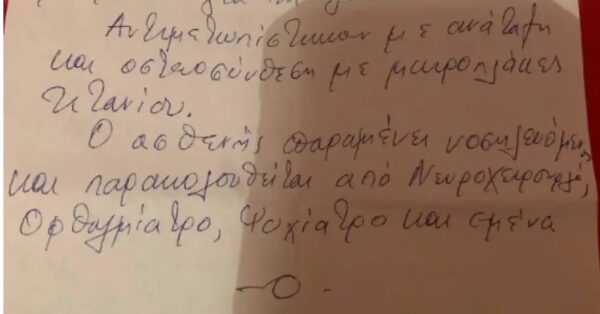 Αντιμετωπίστηκαν με ανάταξη
και οστεοσύνθεση με μικροπλάκες
τιτανίου.
Ο ασθενής παραμένει νοσηλευόμενος
και παρακολουθείται από Νευροχειρουργό,
Οφθαλμίατρο, Ψυχίατρο και εμένα